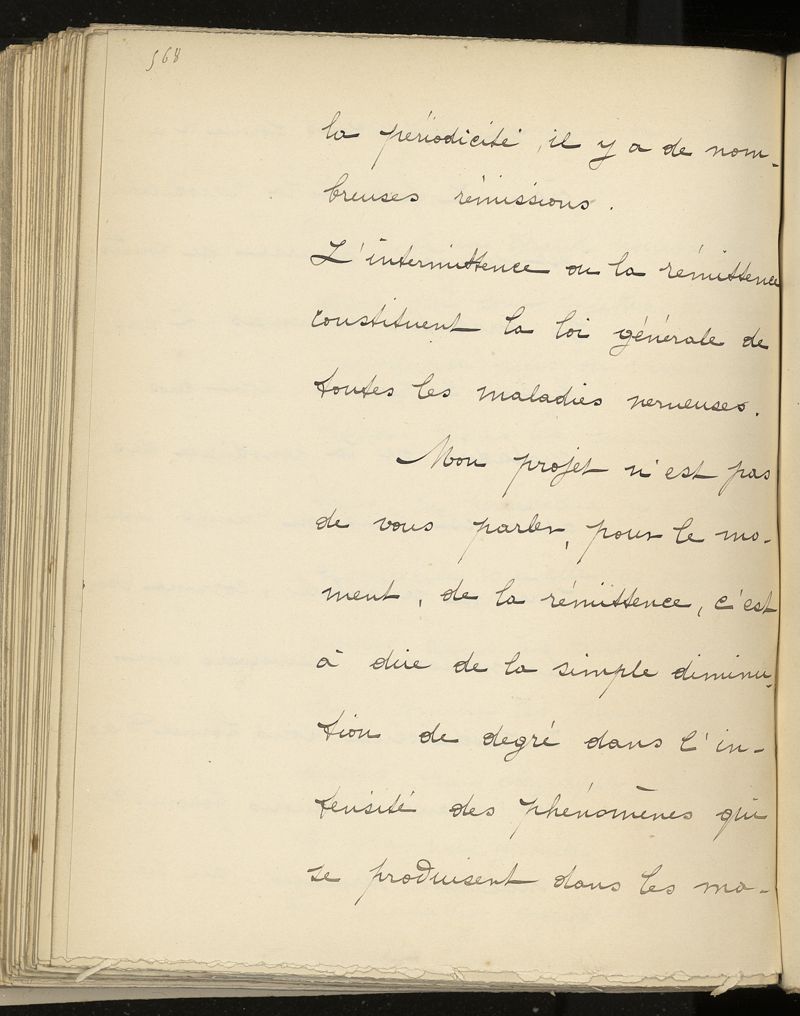 568
la périodicité, il y a de nom-
breuses rémissions.
L'intermittence ou la rémittence
constituent la loi générale de
toutes les maladies nerveuses.
Mon projet n'est pas
de vous parler, pour le mo-
ment, de la rémittence, c'est
à dire de la simple diminu-
tion de degré dans l'in-
tensité des phénomènes qui
se produisent dans les ma-